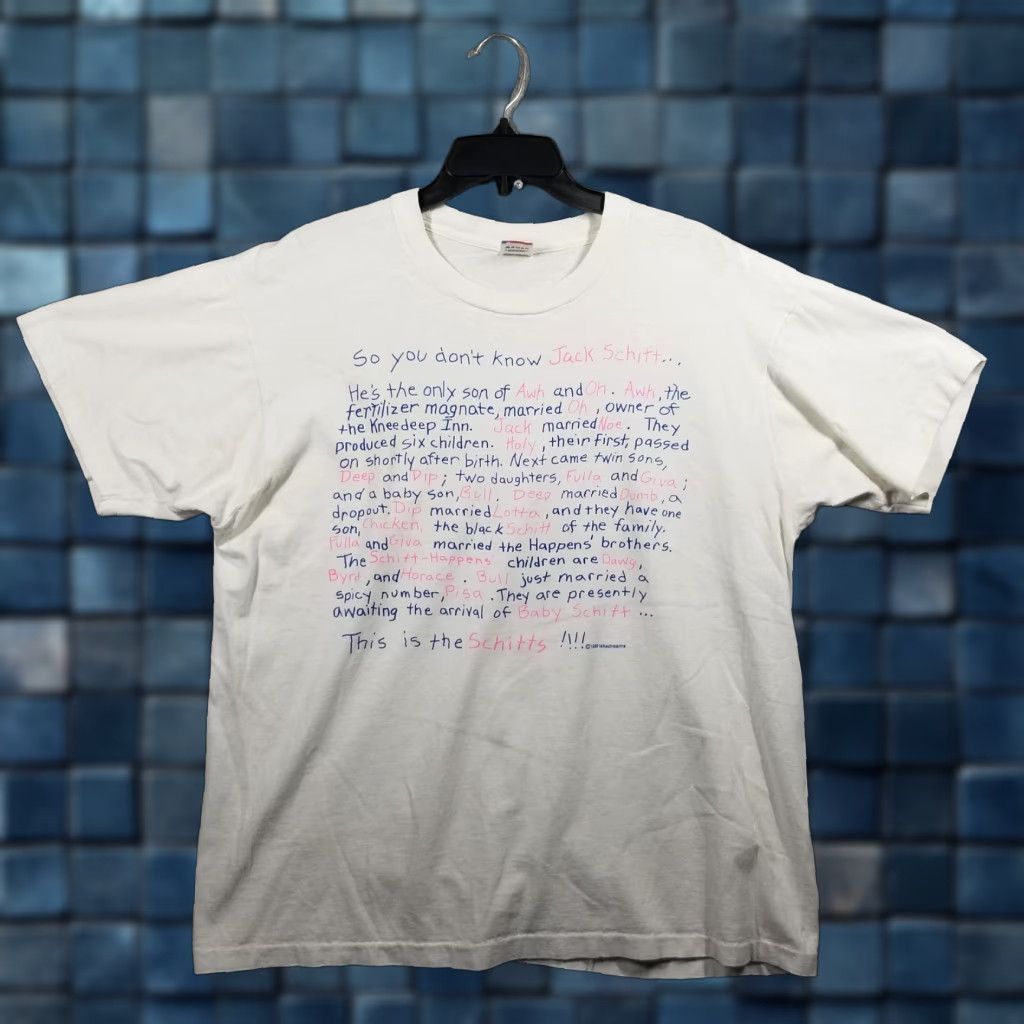 So you don't know Jack Schitt...
He's the only son of Awh and Oh. Awh, the
fertilizer magnate, married Oh, owner of
the Kneedeep Inn. Jack married Noe. They
produced six children. Holy, their first, passed
on shortly after birth. Next came twin sons,
Deep and Dip; two daughters, Fulla and Giva;
and a baby son, Bull. Deep married Dumb, a
dropout. Dip married Lotta, and they have one
son, Chicken, the black Schitt of the family.
Fulla and Giva married the Happens' brothers.
The Schitt-Happens children are Dawg,
Byrd, and Horace. Bull just married a
spicy number, Pisa. They are presently
awaiting the arrival of Baby Schitt...
This is the Schitts !!!!